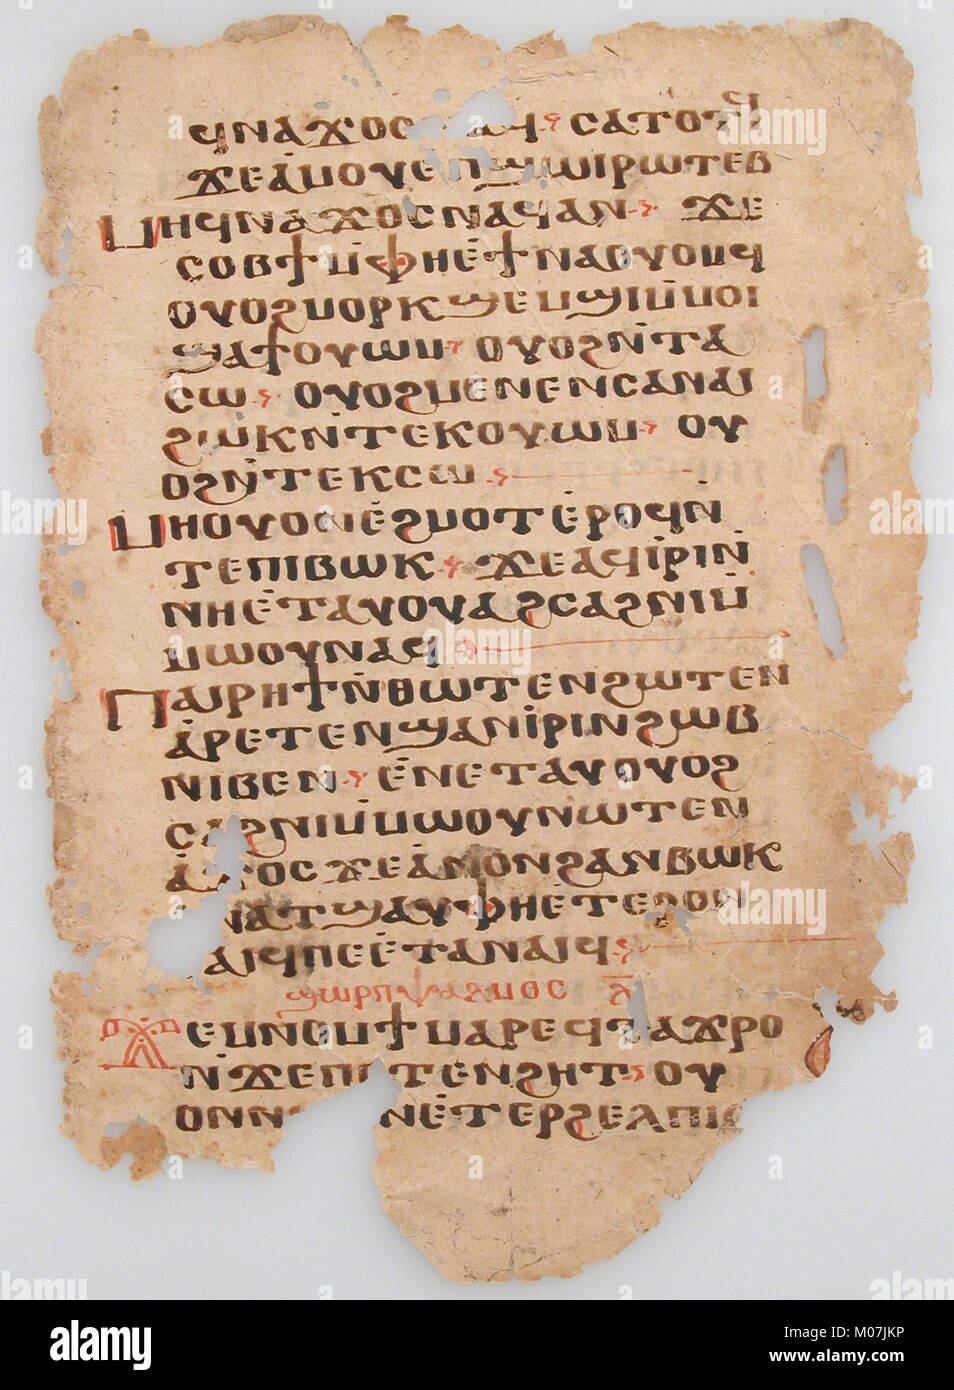 ϥⲛⲁϫⲟⲥ ⲁϥ ⲥⲁⲧⲟⲧϥ
ϫⲉⲁ̀ⲙⲟⲩ ⲉⲡϣⲱⲓ ⲣⲱⲧⲉⲃ
ⲙⲏϥⲛⲁϫⲟⲥⲛⲁϥⲁⲛ ϫⲉ
ⲥⲟⲃϯⲙ̀ⲫⲏⲉ̀ϯⲛⲁⲟⲩⲟⲙϥ
ⲟⲩⲟϩⲙⲟⲣⲕϣⲉⲙϣⲓⲙ̀ⲙⲟⲓ
ϣⲁϯⲟⲩⲱⲙ ⲟⲩⲟϩⲛ̀ⲧⲁ
ⲥⲱ ⲟⲩⲟϩⲙⲉⲛⲉⲛⲥⲁⲛⲁⲓ
ϩⲱⲕⲛ̀ⲧⲉⲕⲟⲩⲱⲙ ⲟⲩ
ⲟϩⲛ̀ⲧⲉⲕⲥⲱ
ⲙⲏⲟⲩⲟⲛⲉ̀ϩⲙⲟⲧⲉ̀ⲣⲟϥⲛ̀
ⲧⲉⲡⲓⲃⲱⲕ ϫⲉⲁϥⲓⲣⲓⲛ̀
ⲛⲏⲉ̀ⲧⲁⲩⲟⲩⲁϩⲥⲁϩⲛⲓⲙ̀
ⲙⲱⲟⲩⲛⲁϥ
ⲡⲁⲓⲣⲏϯⲛ̀ⲑⲱⲧⲉⲛϩⲱⲧⲉⲛ
ⲁ̀ⲣⲉⲧⲉⲛϣⲁⲛⲓ̀ⲣⲓⲛϩⲱⲃ
ⲛⲓⲃⲉⲛ ⲉ̀ⲛⲉⲧⲁⲩⲟⲩⲟϩ
ⲥⲁϩⲛⲓⲙ̀ⲙⲱⲟⲩⲛⲱⲧⲉⲛ
ⲁ̀ϫⲟⲥϫⲉⲁ̀ⲛⲟⲛϩⲁⲛⲃⲱⲕ
ⲛⲁⲧϣⲁⲩⲫⲏⲉ̀ⲧⲉⲣⲟⲛ
ⲁⲓϥⲡⲉⲉ̀ⲧⲁⲛⲁⲓϥ
ϣⲱⲣⲡⲯⲁⲗⲙⲟⲥ ⲗ̅
ϫⲉⲙⲛⲟⲙϯⲙⲁⲣⲉϥⲧⲁϫⲣⲟ
ⲛ̀ϫⲉⲡⲉⲧⲉⲛϩⲏⲧ ⲟⲩ
ⲟⲛⲛ ⲛⲉ̀ⲧⲉⲣϩⲉⲗⲡⲓⲥ